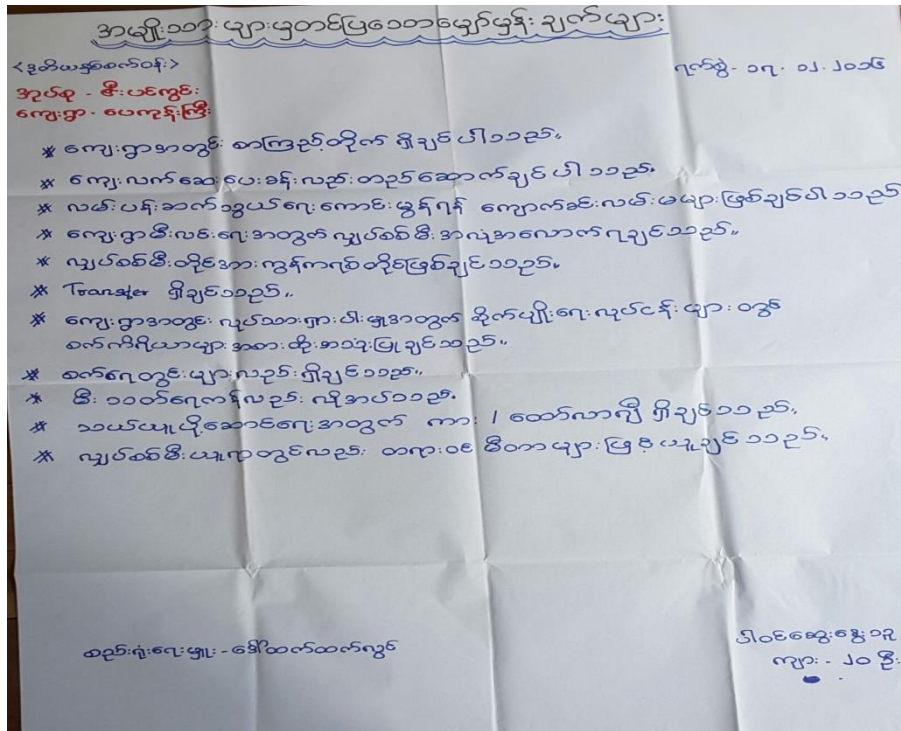 အမျိုးသားများမှတင်ပြသောမျှော်မှန်းချက်များ
<ဒုတိယနှစ်စက်ဝန်း>
ရက်စွဲ - ၁၇.၀၂.၂၀၁၆
အုပ်စု - မီးပင်ကွင်း
ကျေးရွာ - ပေကုန်းကြီး
* ကျေးရွာအတွင်း စာကြည့်တိုက် ရှိချင်ပါသည်။
* ကျေးလက်ဆေးပေးခန်းလည်း တည်ဆောက်ချင်ပါသည်။
* လမ်းပန်းဆက်သွယ်ရေးကောင်းမွန်ရန် ကျောက်ခင်းလမ်းမများဖြစ်ချင်ပါသည်
* ကျေးရွာမီးလင်းရေးအတွက် လျှပ်စစ်မီးအလုံအလောက်ရချင်သည်။
* လျှပ်စစ်မီးတိုင်အား ကွန်ကရစ်တိုင်ဖြစ်ချင်သည်။
* Transfer ရှိချင်သည်။
* ကျေးရွာအတွင်း လုပ်သားရှားပါးမှုအတွက် စိုက်ပျိုးရေးလုပ်ငန်းများတွင်
စက်ကိရိယာများ အစားထိုးအသုံးပြုချင်သည်။
* စက်ရေတွင်းများလည်းရှိချင်သည်။
* မီးသတ်ရေကန်လည်း လိုအပ်သည်။
* သယ်ယူပို့ဆောင်ရေးအတွက် ကား / ထော်လာဂျီ ရှိချင်သည်။
* လျှပ်စစ်မီးယူရာတွင်လည်း တရားဝင် မီတာများဖြင့်ယူချင်သည်။
စည်းရုံးရေးမှူး - ဒေါ်ထက်ထက်လွင်
ပါဝင်ဆွေးနွေးသူ
ကျား - ၂၀ ဦး